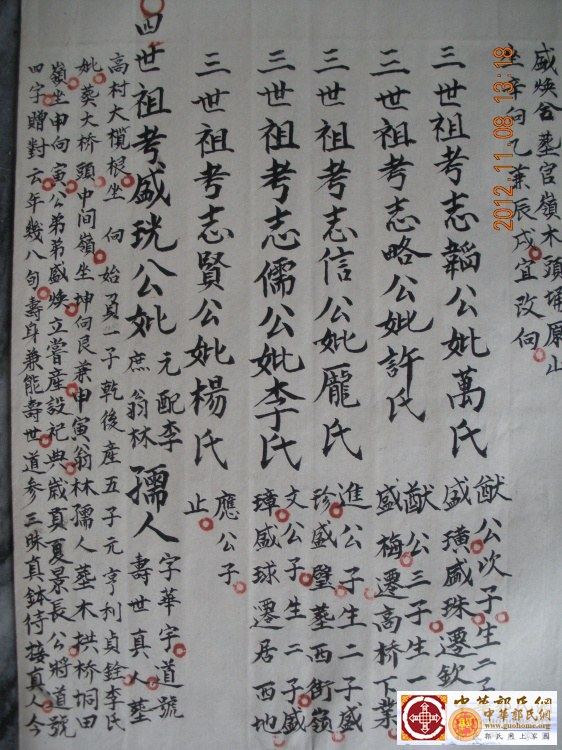 盛煥公葬官嶺木頭埇原山
坐辛向乙兼辰戌宜改向
三世祖考志韜公妣萬氏
猷公次子生二子
盛璜盛珠遷欽
三世祖考志略公妣許氏
猷公三子生一
盛梅遷高橋下業
三世祖考志信公妣龐氏
進公子生二子盛
珍盛璧葬西街嶺
三世祖考志儒公妣李氏
文公子生二子盛
璋盛球遷居西地
三世祖考志賢公妣楊氏
應公子
止
四世祖考盛珖公妣
元配李
庶翁林
孺人
字華宇道號
壽世真人葬
高村大欖根坐 向始育一子乾後產五子元亨利貞銓李氏
妣葬大桥頭中间嶺坐坤向艮兼申寅翁林孺人葬木拱桥垌田
嶺坐申向寅公弟弟盛煥立嘗產設祀典歲頁夏景長公將道號
四字贈對云年幾八旬壽身兼能壽世道參三昧真鉢侍接真人今
2012.11.08 13:18
中華郭氏網
中華郭氏網
www.guohome.org
郭氏網上家園